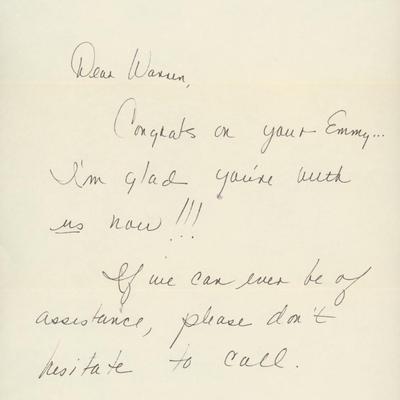 Dear Warren,
Congrats on your Emmy...
I'm glad you're with
us now!!!
If we can ever be of
assistance, please don't
hesitate to call.